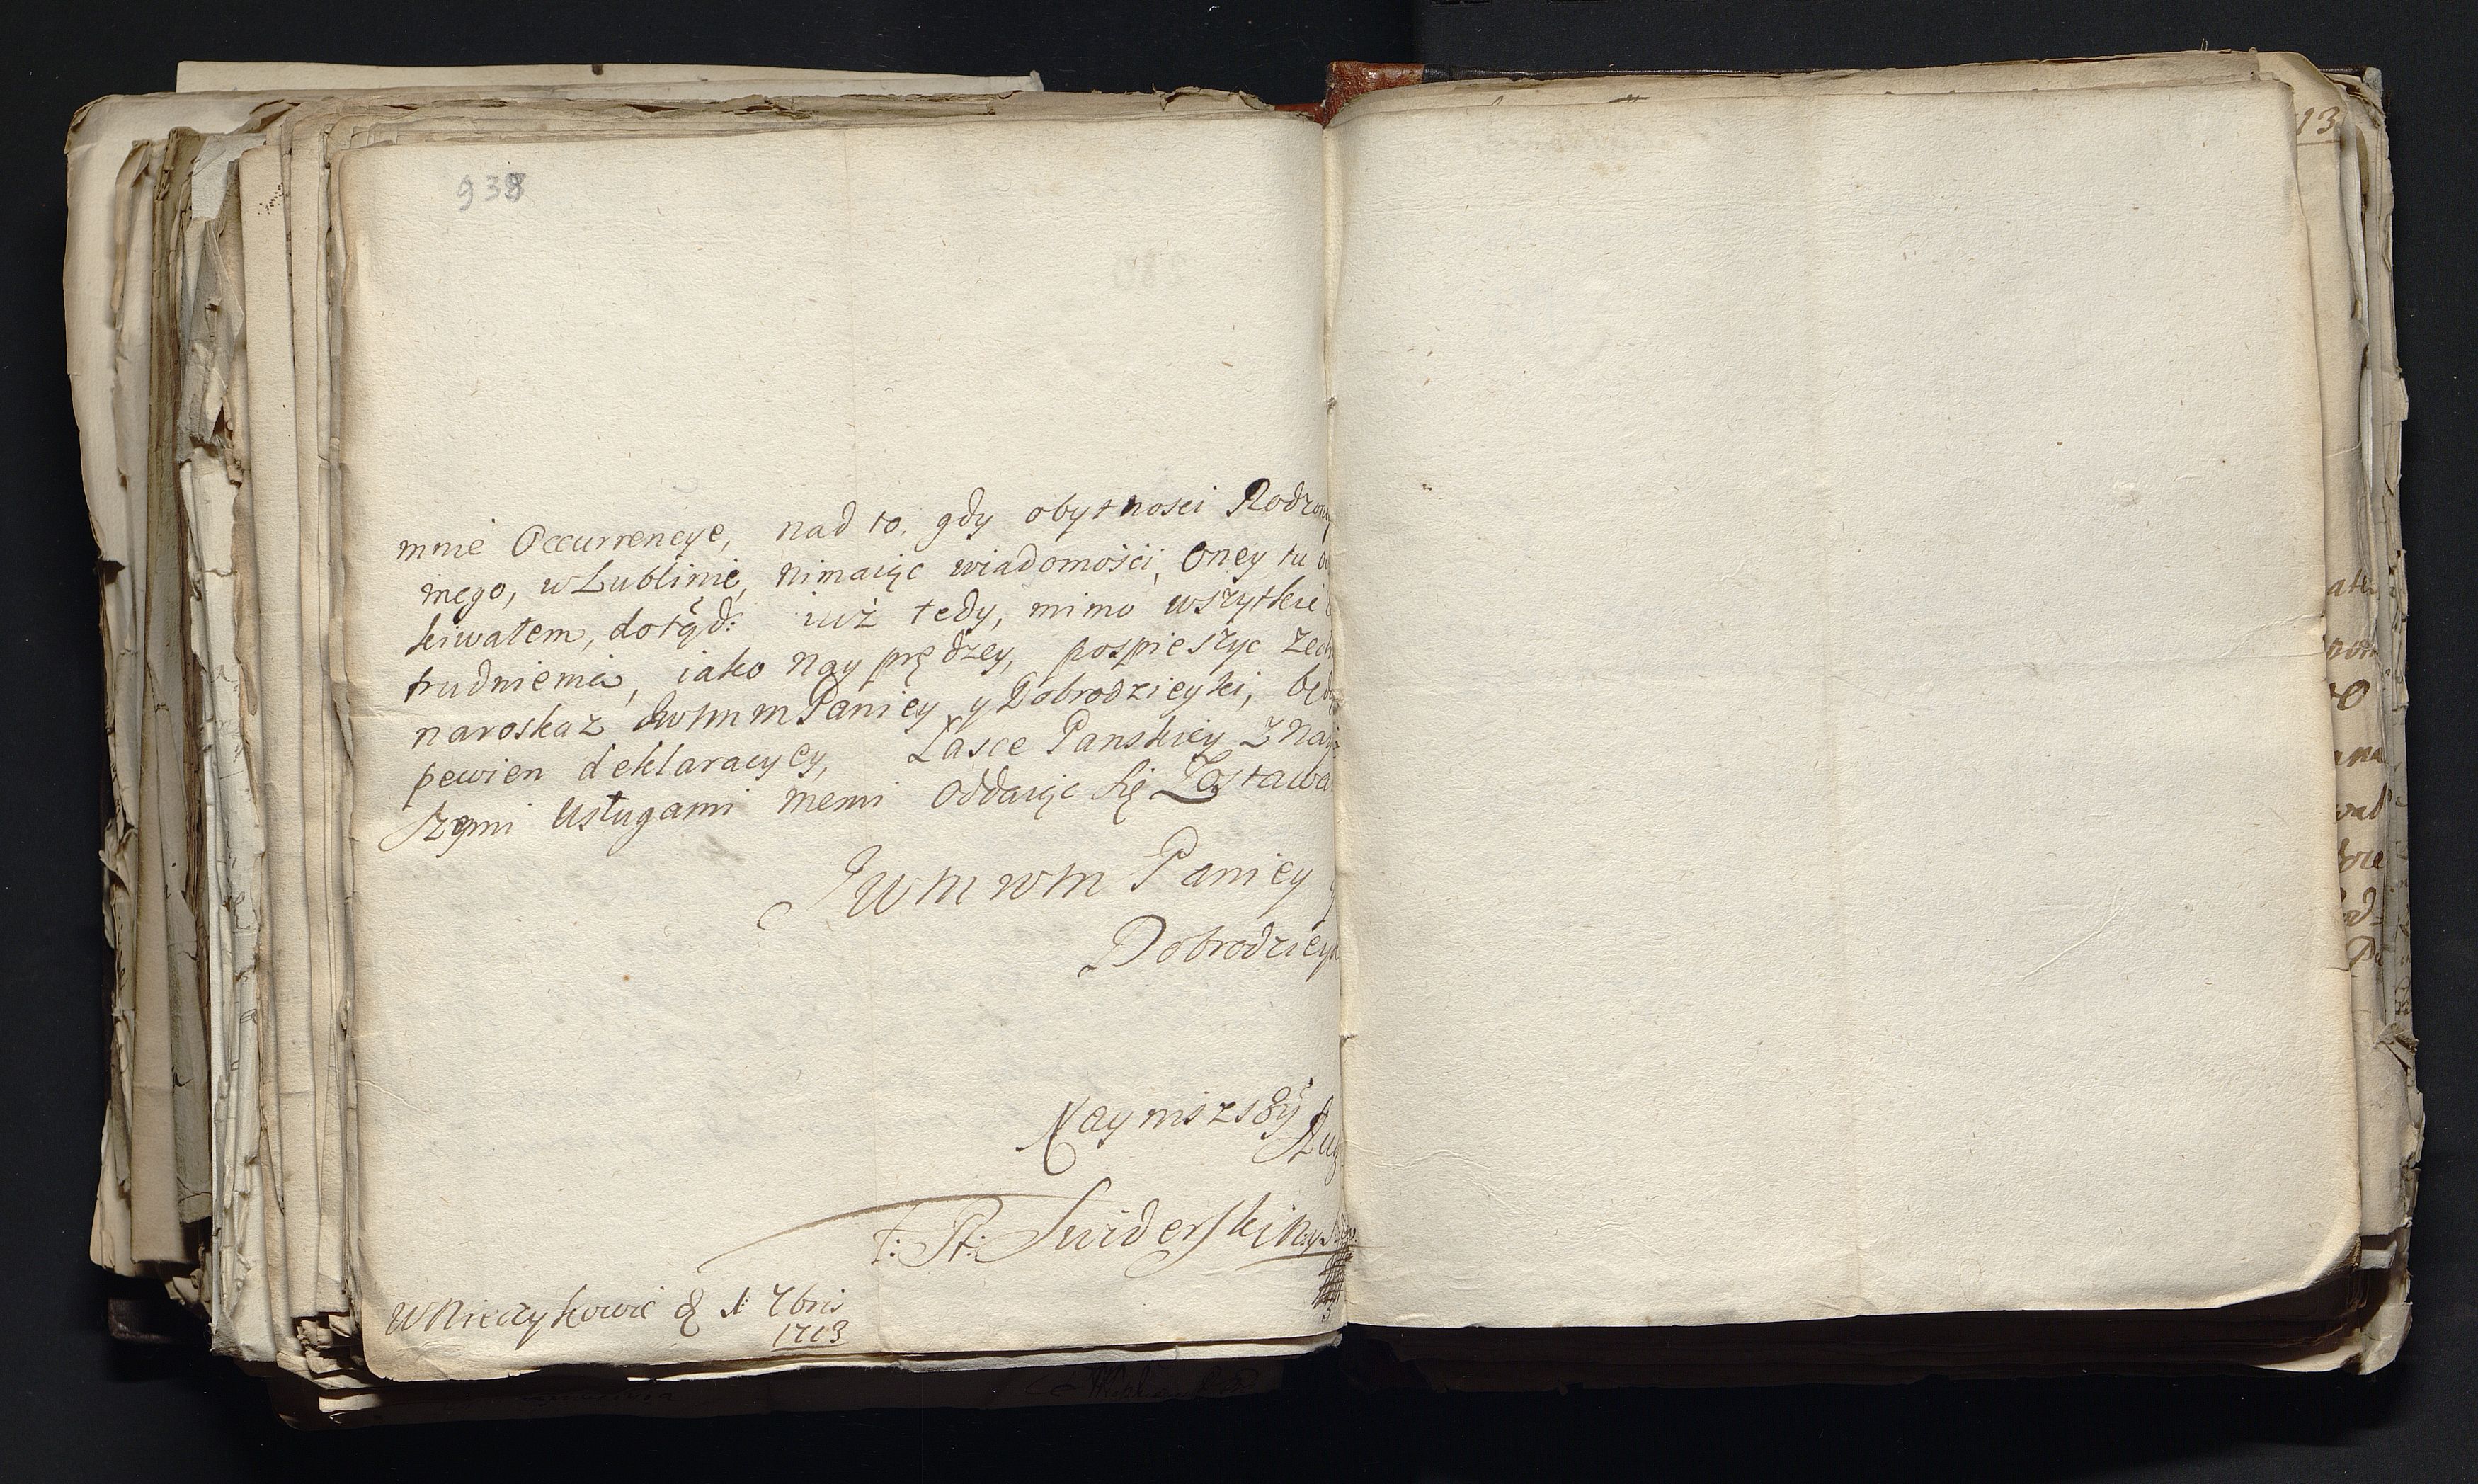 938
mnie Occurrencye, nad to. gdy obytnosci Rodzon
mego, w Lublinie, nimaiąc wiadomości, Oney tu
kiwałem, dotąd: iuż tedy, mimo wszytkie
trudnienia, iako nay prędzey, pospieszyc zech
naroskaz Jwmm Paniey y Dobrodzieyki, będ
pewien deklaracyey, Łasce Panskiey z nay
szymi Usługami memi Oddaiąc się Zostawa
Jwm wm Paniey y
Dobrodzieyk
Nayniszszy
Sług
Swiderski
W Nieczykowie d 1: 7bris
1713
13